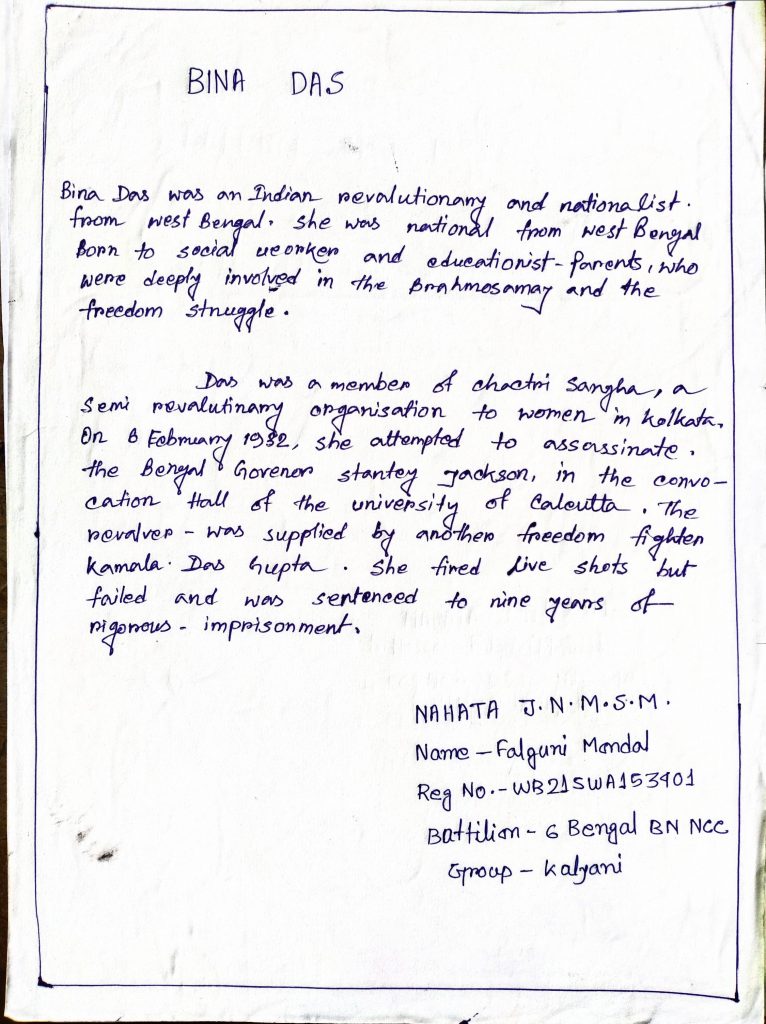 BINA DAS
Bina Das was an Indian revalutionary and nationalist.
from west Bengal. She was national from west Bengal
Born to social ueorker and educationist-parents, who
were deeply involved in the Brahmosamay and the
freedom struggle.
Das was a member of chactri Sangha, a
Semi revalutinary organisation to women in kolkata.
On 6 February 1932, she attempted to assassinate.
the Bengal Govenor stantey Jackson, in the convo-
cation Hall of the university of Calcutta. The
revalver - was supplied by another freedom fighter
Kamala. Das Gupta. She fired live shots but
failed and was sentenced to nine years of
rigorous - imprisonment.
NAHATA J.N.M.S.M.
Name - Falguni Mondal
Reg No.- WB21SWA153401
Battilion - 6 Bengal BN NCC
Group - Kalyani